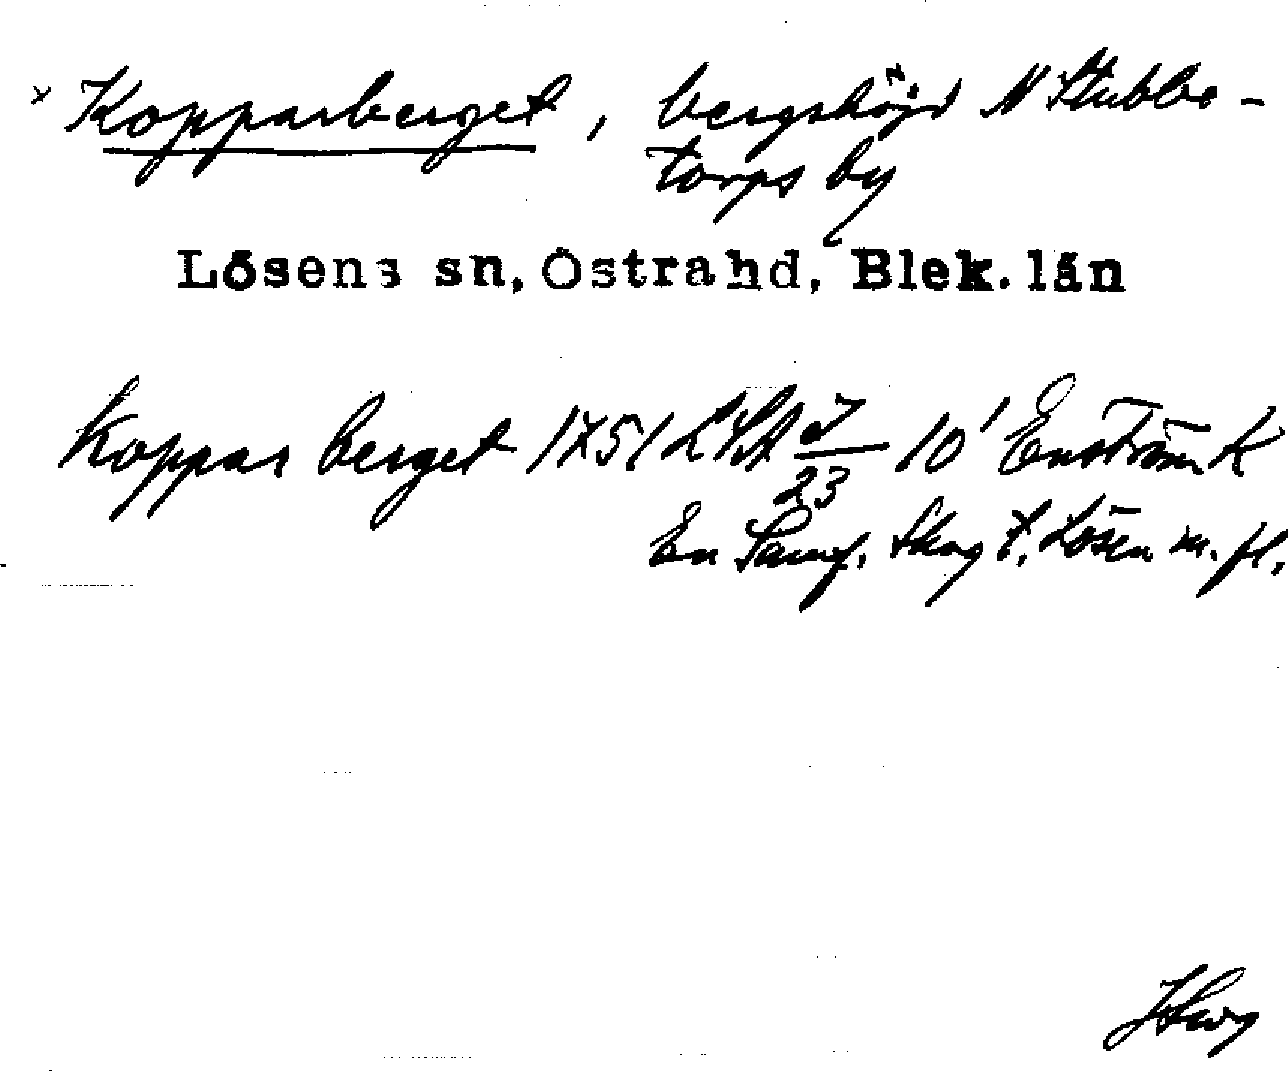 x Kopparberget, bergshöjd N Stubbe-
torps by
Lösens sn, Östra hd, Blek. län
Koppar berget 1751 LSA J/23 10' Enström K
En Samf. Skog t. Lösen m. fl.